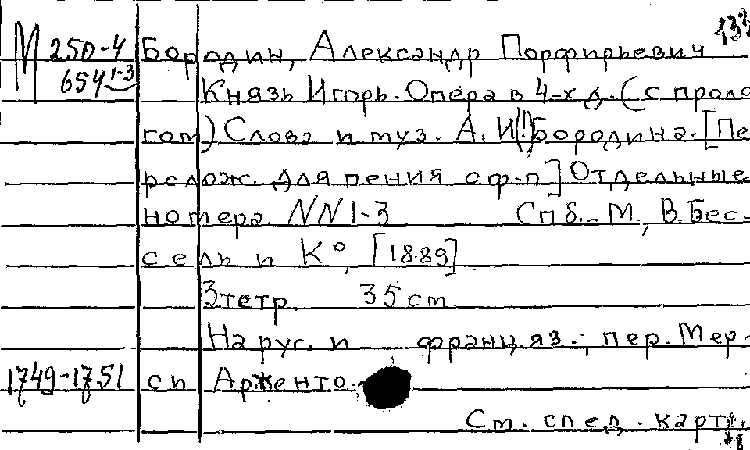 М 250-4 Бородин, Александр Порфирьевич
654 1-3 Князь Игорь. Опера в 4-х д. (с проло
гом) Слова и муз. А. И(!) Бородина. [Пе
релож. для пения с ф-п] Отдельные
номера NN 1-3 Спб.-М., В. Бес-
сель и К°, [1889]
3 тетр. 35 cm
На рус. и франц. яз.; пер. Мер-
1749-1751 си Арженто.
См. след. карт.